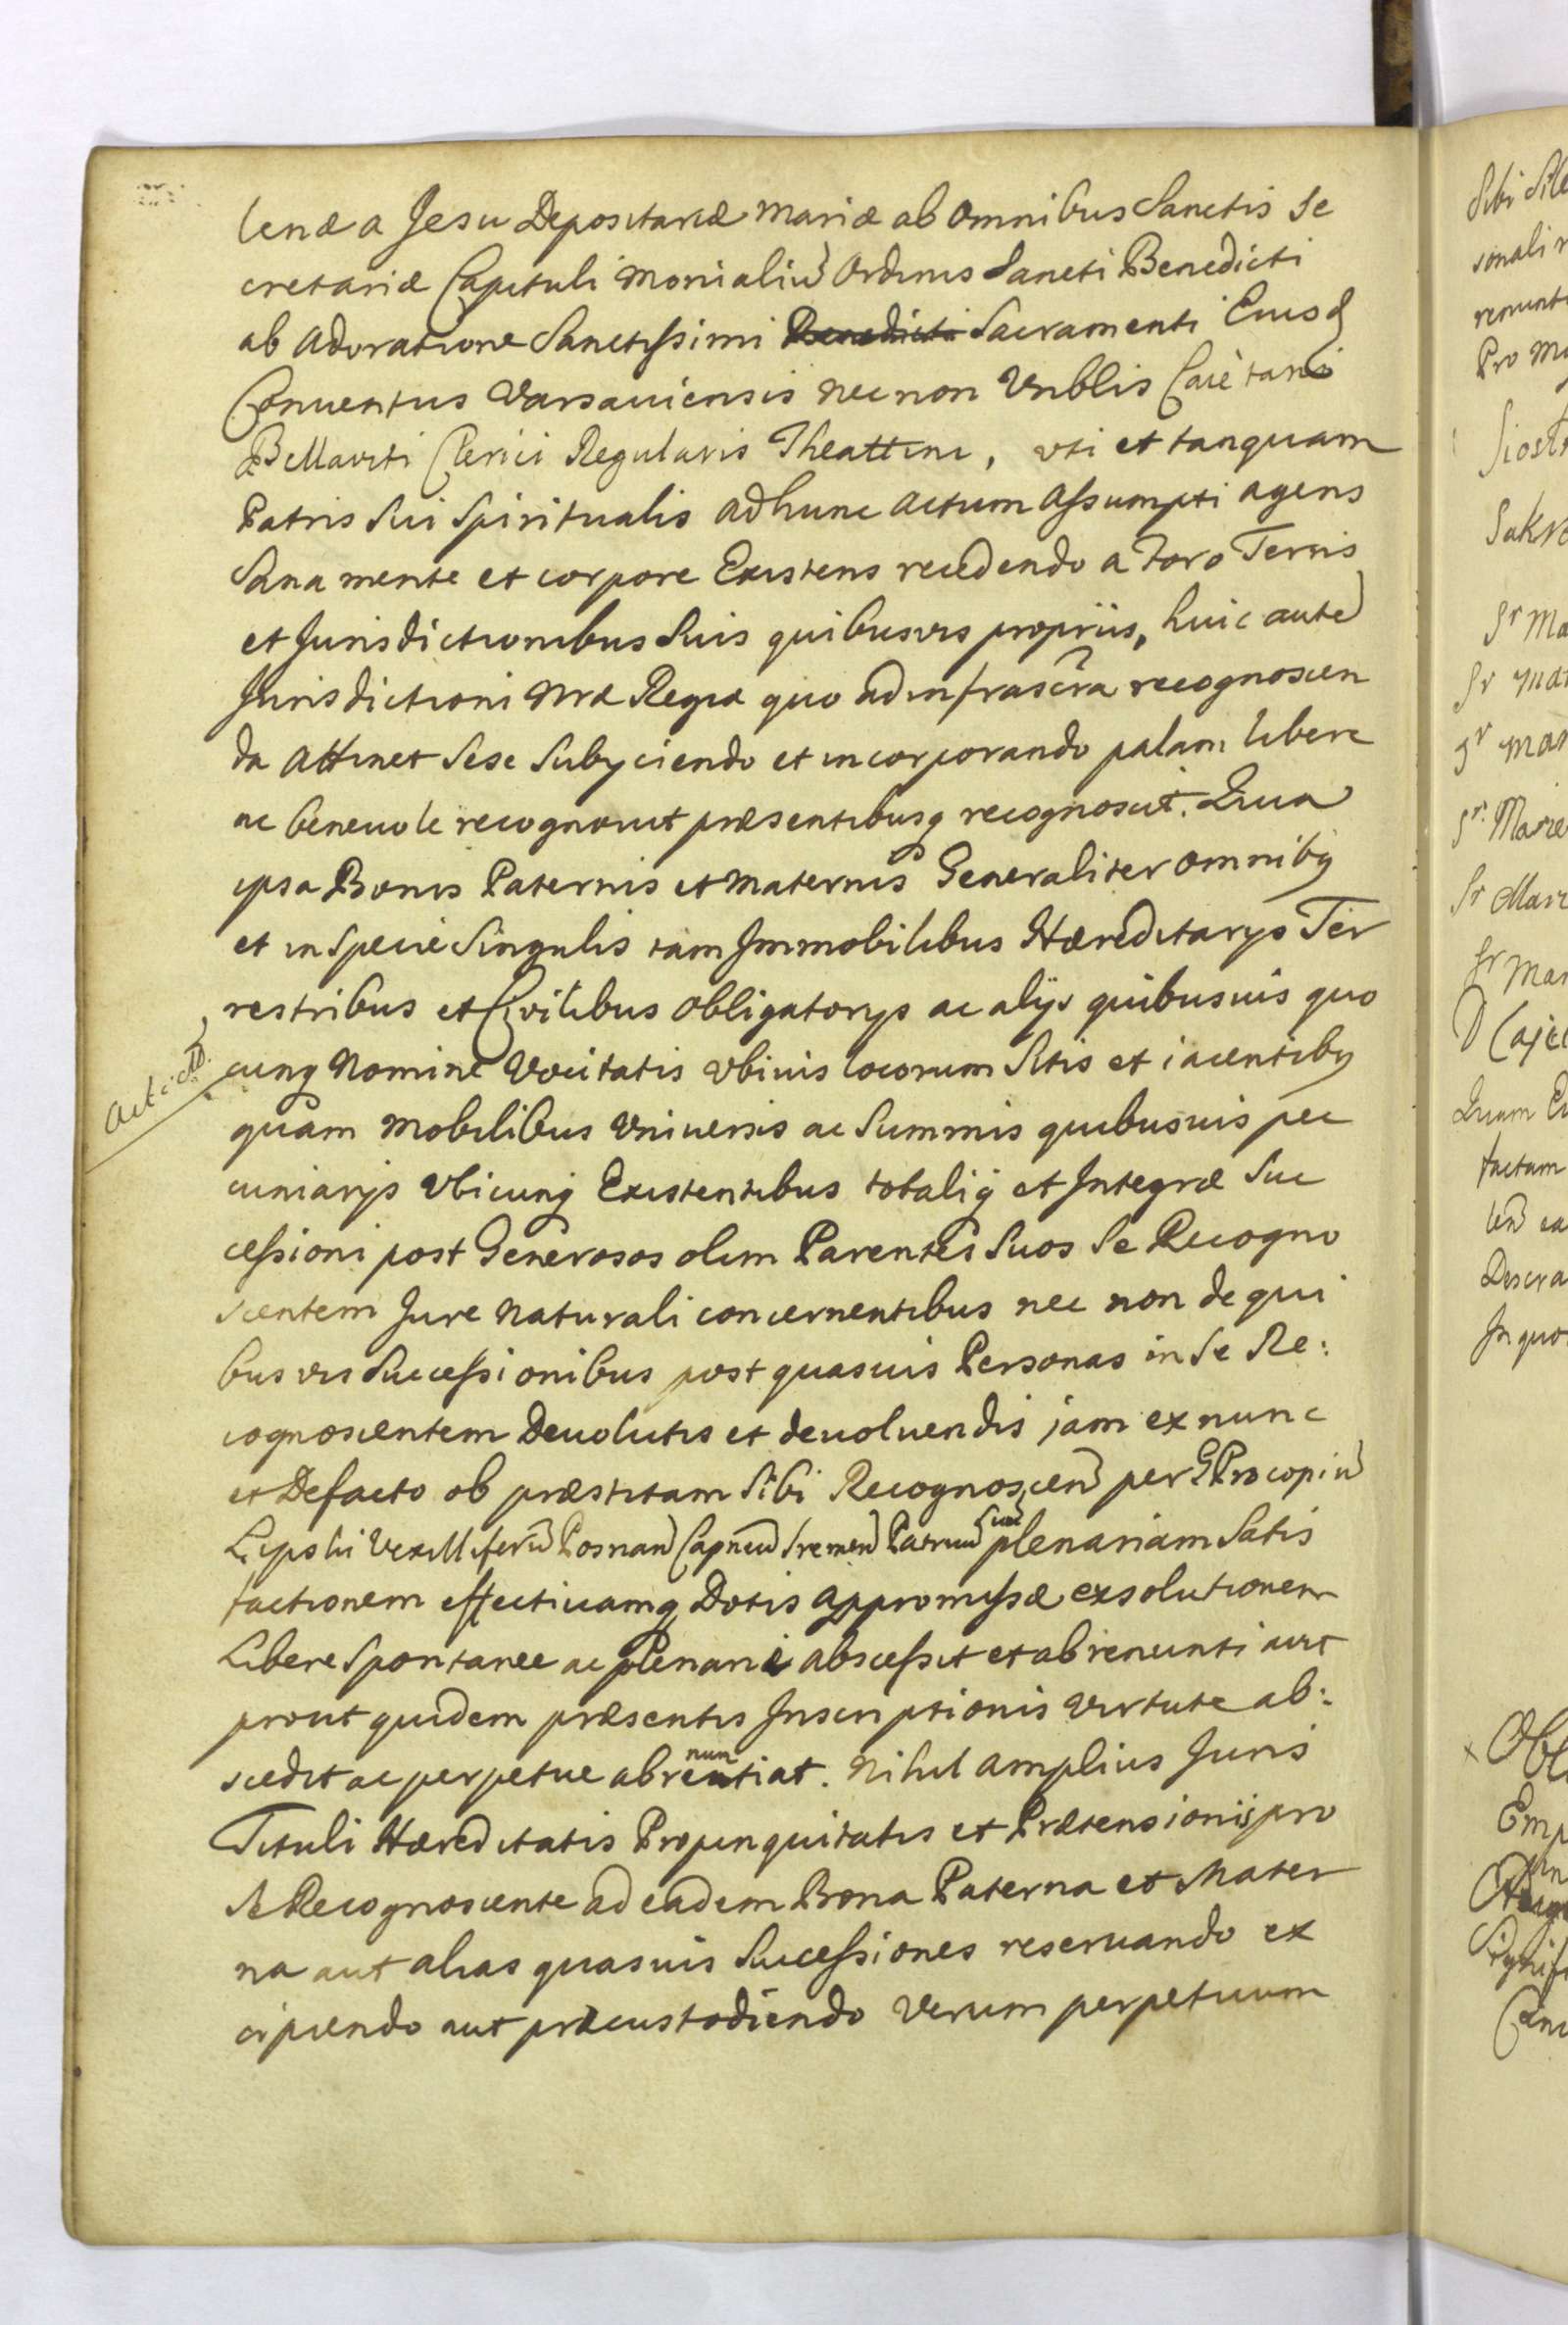 lenæ a Jesu Depositariæ Mariæ ab Omnibus Sanctis Se
cretariæ Capituli Monialiũ Ordinis Sancti Benedicti
ab Adoratione Sanctissimi Benedicti Sacramenti Eiusd
Conuentus Varsauiensis nec non Vnblis Caietani
Bellaviti Clerici Regularis Theattini, vti et tanquam
Patris Sui Spiritualis ad hunc actum assumpti agens
Sana mente et corpore Existens recedendo a Foro Terris
et Jurisdictionibus Suis quibusvis propriis, huic aute
Jurisdictioni Nræ Regiæ quo ad infrascra recognoscen
da attinet Sese Subyciendo et incorporando palam libere
ac beneuole recognouit præsentibusq recognoscit. Quia
ipsa Bonis Paternis et Maternis Generaliter omnibq
et in Specie Singulis tam Immobilibus Hæreditarys Ter
restribus et Civilibus Obligatorys ac alijs quibusuis quo
cunq Nomine Vocitatis vbiuis locorum Sitis et iacentibq
quam Mobilibus Vniuersis ac Summis quibusuis pec
cuniarijs Vbicunq Existentibus totaliq et Integræ Suc
cessioni post Generosos olim Parentes Suos Se Recogno
scentem Jure Naturali concernentibus nec non de qui
busvis Successionibus post quasuis Personas in Se Re:
cognoscentem Deuolutis et deuoluendis jam ex nunc
et Defacto ob præstitam Sibi Recognoscen per G Procopiũ
Lipski Vexilliferũ Posnan Capneũ Sremen Patruũ Suũ plenariam Satis
factionem effectiuamq Dotis appromissæ exsolutionem
Libere Spontanee ac plenarie abscessit et abrenuntiauit
prout quidem præsentis Inscriptionis Virtute ab:
scedit ac perpetue abrenuntiat. Nihil amplius Juris
Tituli Hæreditatis Propinquitatis et Prætensionis pro
Se Recognoscente ad eadem Bona Paterna et Mater
na aut alias quasuis Successiones reseruando ex
cipiendo aut præcustodiendo Verum perpetuum